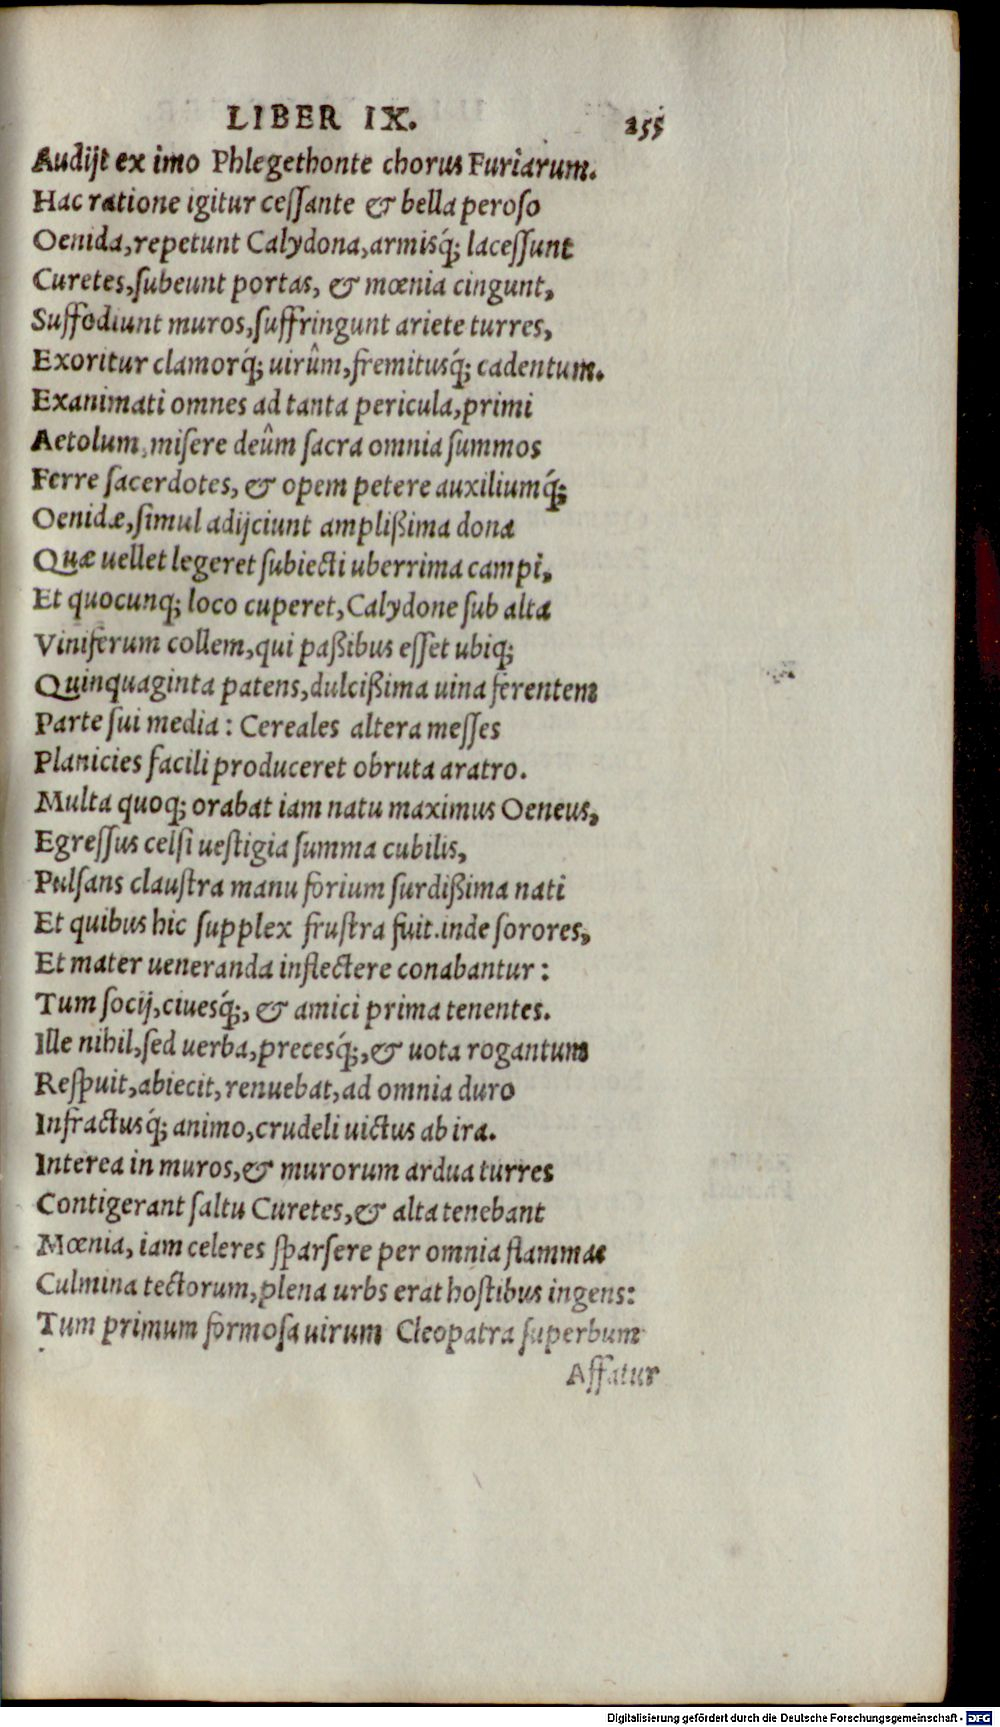 LIBER IX. 255
Audijt ex imo Phlegethonte chorus Furiarum.
Hac ratione igitur ceſſante & bella peroſo
Oenida, repetunt Calydona, armisq́; laceſſunt
Curetes, ſubeunt portas, & mœnia cingunt,
Suffodiunt muros, ſuffringunt ariete turres,
Exoritur clamorq́; uirûm, fremitusq́; cadentum.
Exanimati omnes ad tanta pericula, primi
Aetolum, miſere deûm ſacra omnia ſummos
Ferre ſacerdotes, & opem petere auxiliumq́;
Oenidæ, ſimul adijciunt ampliſsima dona
Quæ uellet legeret ſubiecti uberrima campi,
Et quocunq; loco cuperet, Calydone ſub alta
Viniferum collem, qui paſsibus eſſet ubiq;
Quinquaginta patens, dulciſsima uina ferentem
Parte ſui media: Cereales altera meſſes
Planicies facili produceret obruta aratro.
Multa quoq; orabat iam natu maximus Oeneus,
Egreſſus celſi ueſtigia ſumma cubilis,
Pulſans clauſtra manu forium ſurdiſsima nati
Et quibus hic ſupplex fruſtra fuit. inde ſorores,
Et mater ueneranda inflectere conabantur:
Tum ſocij, ciuesq́;, & amici prima tenentes.
Ille nihil, ſed uerba, precesq́;, & uota rogantum
Reſpuit, abiecit, renuebat, ad omnia duro
Infractusq́; animo, crudeli uictus ab ira.
Interea in muros, & murorum ardua turres
Contigerant ſaltu Curetes, & alta tenebant
Mœnia, iam celeres ſparſere per omnia flammas
Culmina tectorum, plena urbs erat hoſtibus ingens:
Tum primum formoſa uirum Cleopatra ſuperbum
Affatur
Digitalisierung gefördert durch die Deutsche Forschungsgemeinschaft - DFG